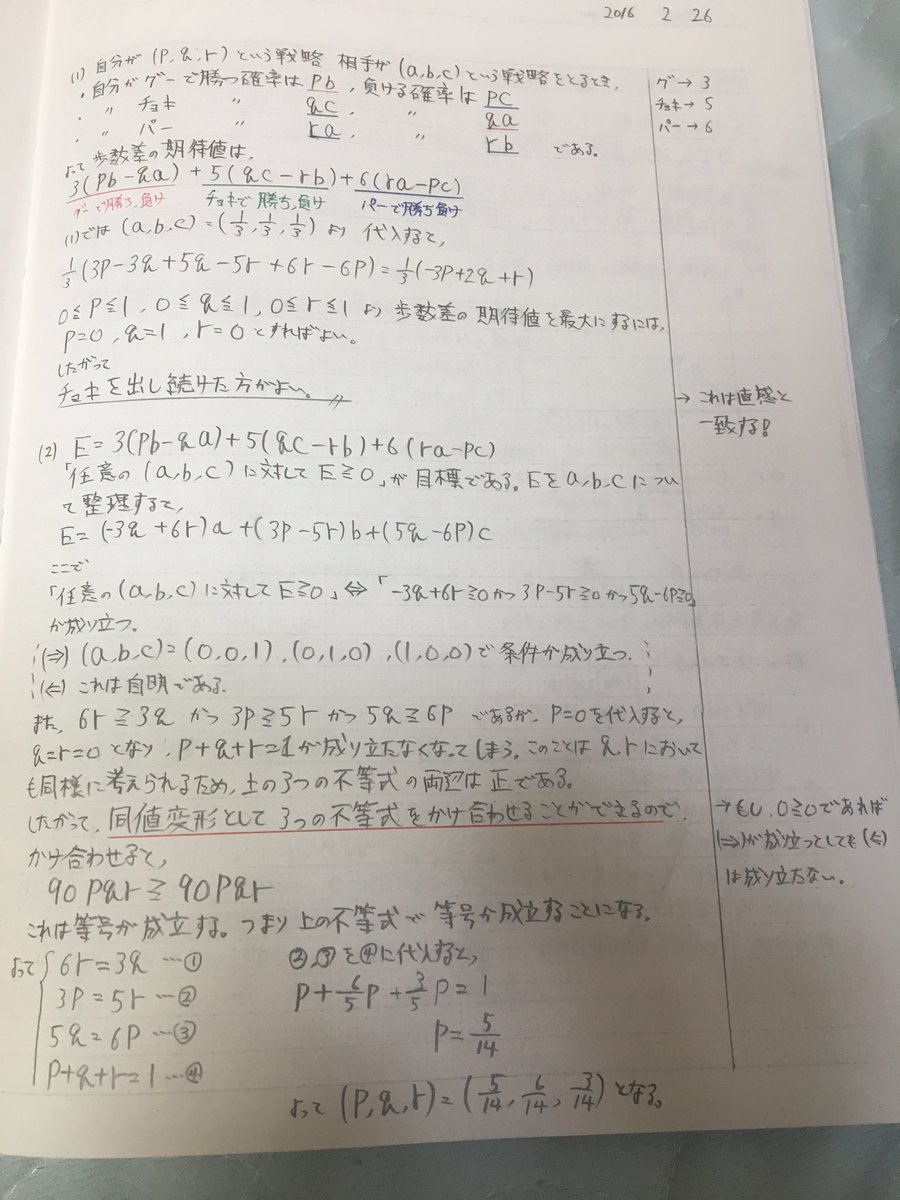 2016 2 26
(1) 自分が (P, q, r) という戦略 相手が (a, b, c) という戦略をとるとき,
・自分が グー で勝つ確率は Pb , 負ける確率は PC
・ 〃 チョキ 〃 qc , 〃 qa
・ 〃 パー 〃 ra , 〃 rb である。
よって歩数差の期待値は,
3(Pb-qa) + 5(qc-rb) + 6(ra-pc)
グーで勝ち,負け チョキで勝ち,負け パーで勝ち負け
(1)では (a,b,c) = (1/3, 1/3, 1/3) より 代入すると,
1/3(3P-3q+5q-5r+6r-6P) = 1/3(-3P+2q+r)
0≦P≦1, 0≦q≦1, 0≦r≦1 より 歩数差の期待値を最大にするには,
P=0, q=1, r=0 とすればよい。
したがって
チョキを出し続けた方がよい。
(2) E = 3(Pb-qa)+5(qc-rb)+6(ra-pc)
「任意の (a,b,c) に対して E≧0」が目標である。Eをa,b,cについ
て整理すると,
E = (-3q+6r)a+(3P-5r)b+(5q-6P)c
ここで
「任意の(a,b,c)に対してE≧0」⇔「-3q+6r≧0かつ3P-5r≧0かつ5q-6P≧0」
が成り立つ。
(⇒) (a,b,c)=(0,0,1),(0,1,0),(1,0,0)で条件が成り立つ.
(⇐) これは自明である.
また, 6r≧3q かつ 3P≧5r かつ 5q≧6P であるが, P=0を代入すると,
q=r=0 となり, P+q+r=1が成り立たなくなってしまう。このことは q,r において
も同様に考えられるため, 上の3つの不等式の両辺は正である。
したがって, 同値変形として 3つの不等式をかけ合わせることができるので,
かけ合わせると,
90Pqr≧90Pqr
これは等号が成立する。つまり上の不等式で等号が成立することになる。
よって 6r=3q …①
3P=5r …②
5q=6P …③
P+q+r=1 …④
②,③を④に代入すると,
P+6/5P+3/5P=1
P=5/14
よって (P,q,r)=(5/14, 6/14, 3/14) となる。
グー→3
チョキ→5
パー→6
→これは直感と
一致する!
→もし, 0≧0であれば
(⇒)が成り立つとしても(⇐)
は成り立たない。